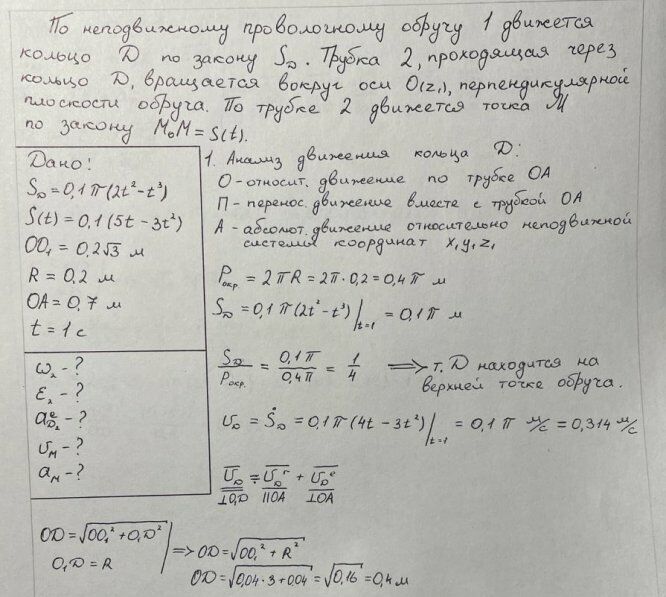 По неподвижному проволочному обручу 1 движется
кольцо D по закону S_D. Трубка 2, проходящая через
кольцо D, вращается вокруг оси O(z₁), перпендикулярной
плоскости обруча. По трубке 2 движется точка M
по закону M₀M = S(t).
Дано:
S_D = 0,1π(2t² - t³)
S(t) = 0,1(5t - 3t²)
OO₁ = 0,2√3 м
R = 0,2 м
OA = 0,7 м
t = 1 с
ω₂ - ?
ε₂ - ?
a^e_D₂ - ?
υ_M - ?
a_M - ?
1. Анализ движения кольца D:
О - относит. движение по трубке OA
П - перенос. движение вместе с трубкой OA
А - абсолют. движение относительно неподвижной
системы координат x₁y₁z₁
P_окр. = 2πR = 2π·0,2 = 0,4π м
S_D = 0,1π(2t² - t³)|_t=1 = 0,1π м
S_D/P_окр. = 0,1π/0,4π = 1/4 ⟹ т. D находится на
верхней точке обруча.
υ_D = Ṡ_D = 0,1π(4t - 3t²)|_t=1 = 0,1π м/с = 0,314 м/с
υ̅_D = υ̅_D^r + υ̅_D^e
⊥O₁D ||OA ⊥OA
OD = √(OO₁² + O₁D²)
O₁D = R
⟹ OD = √(OO₁² + R²)
OD = √(0,04·3 + 0,04) = √0,16 = 0,4 м